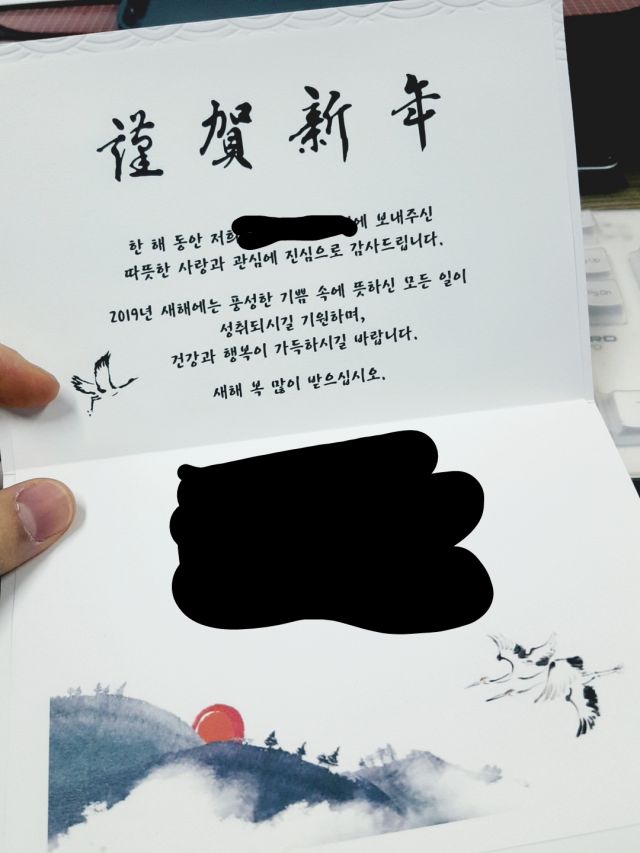 謹賀新年
한 해 동안 저희 에 보내주신
따뜻한 사랑과 관심에 진심으로 감사드립니다.
2019년 새해에는 풍성한 기쁨 속에 뜻하신 모든 일이
성취되시길 기원하며,
건강과 행복이 가득하시길 바랍니다.
새해 복 많이 받으십시오.